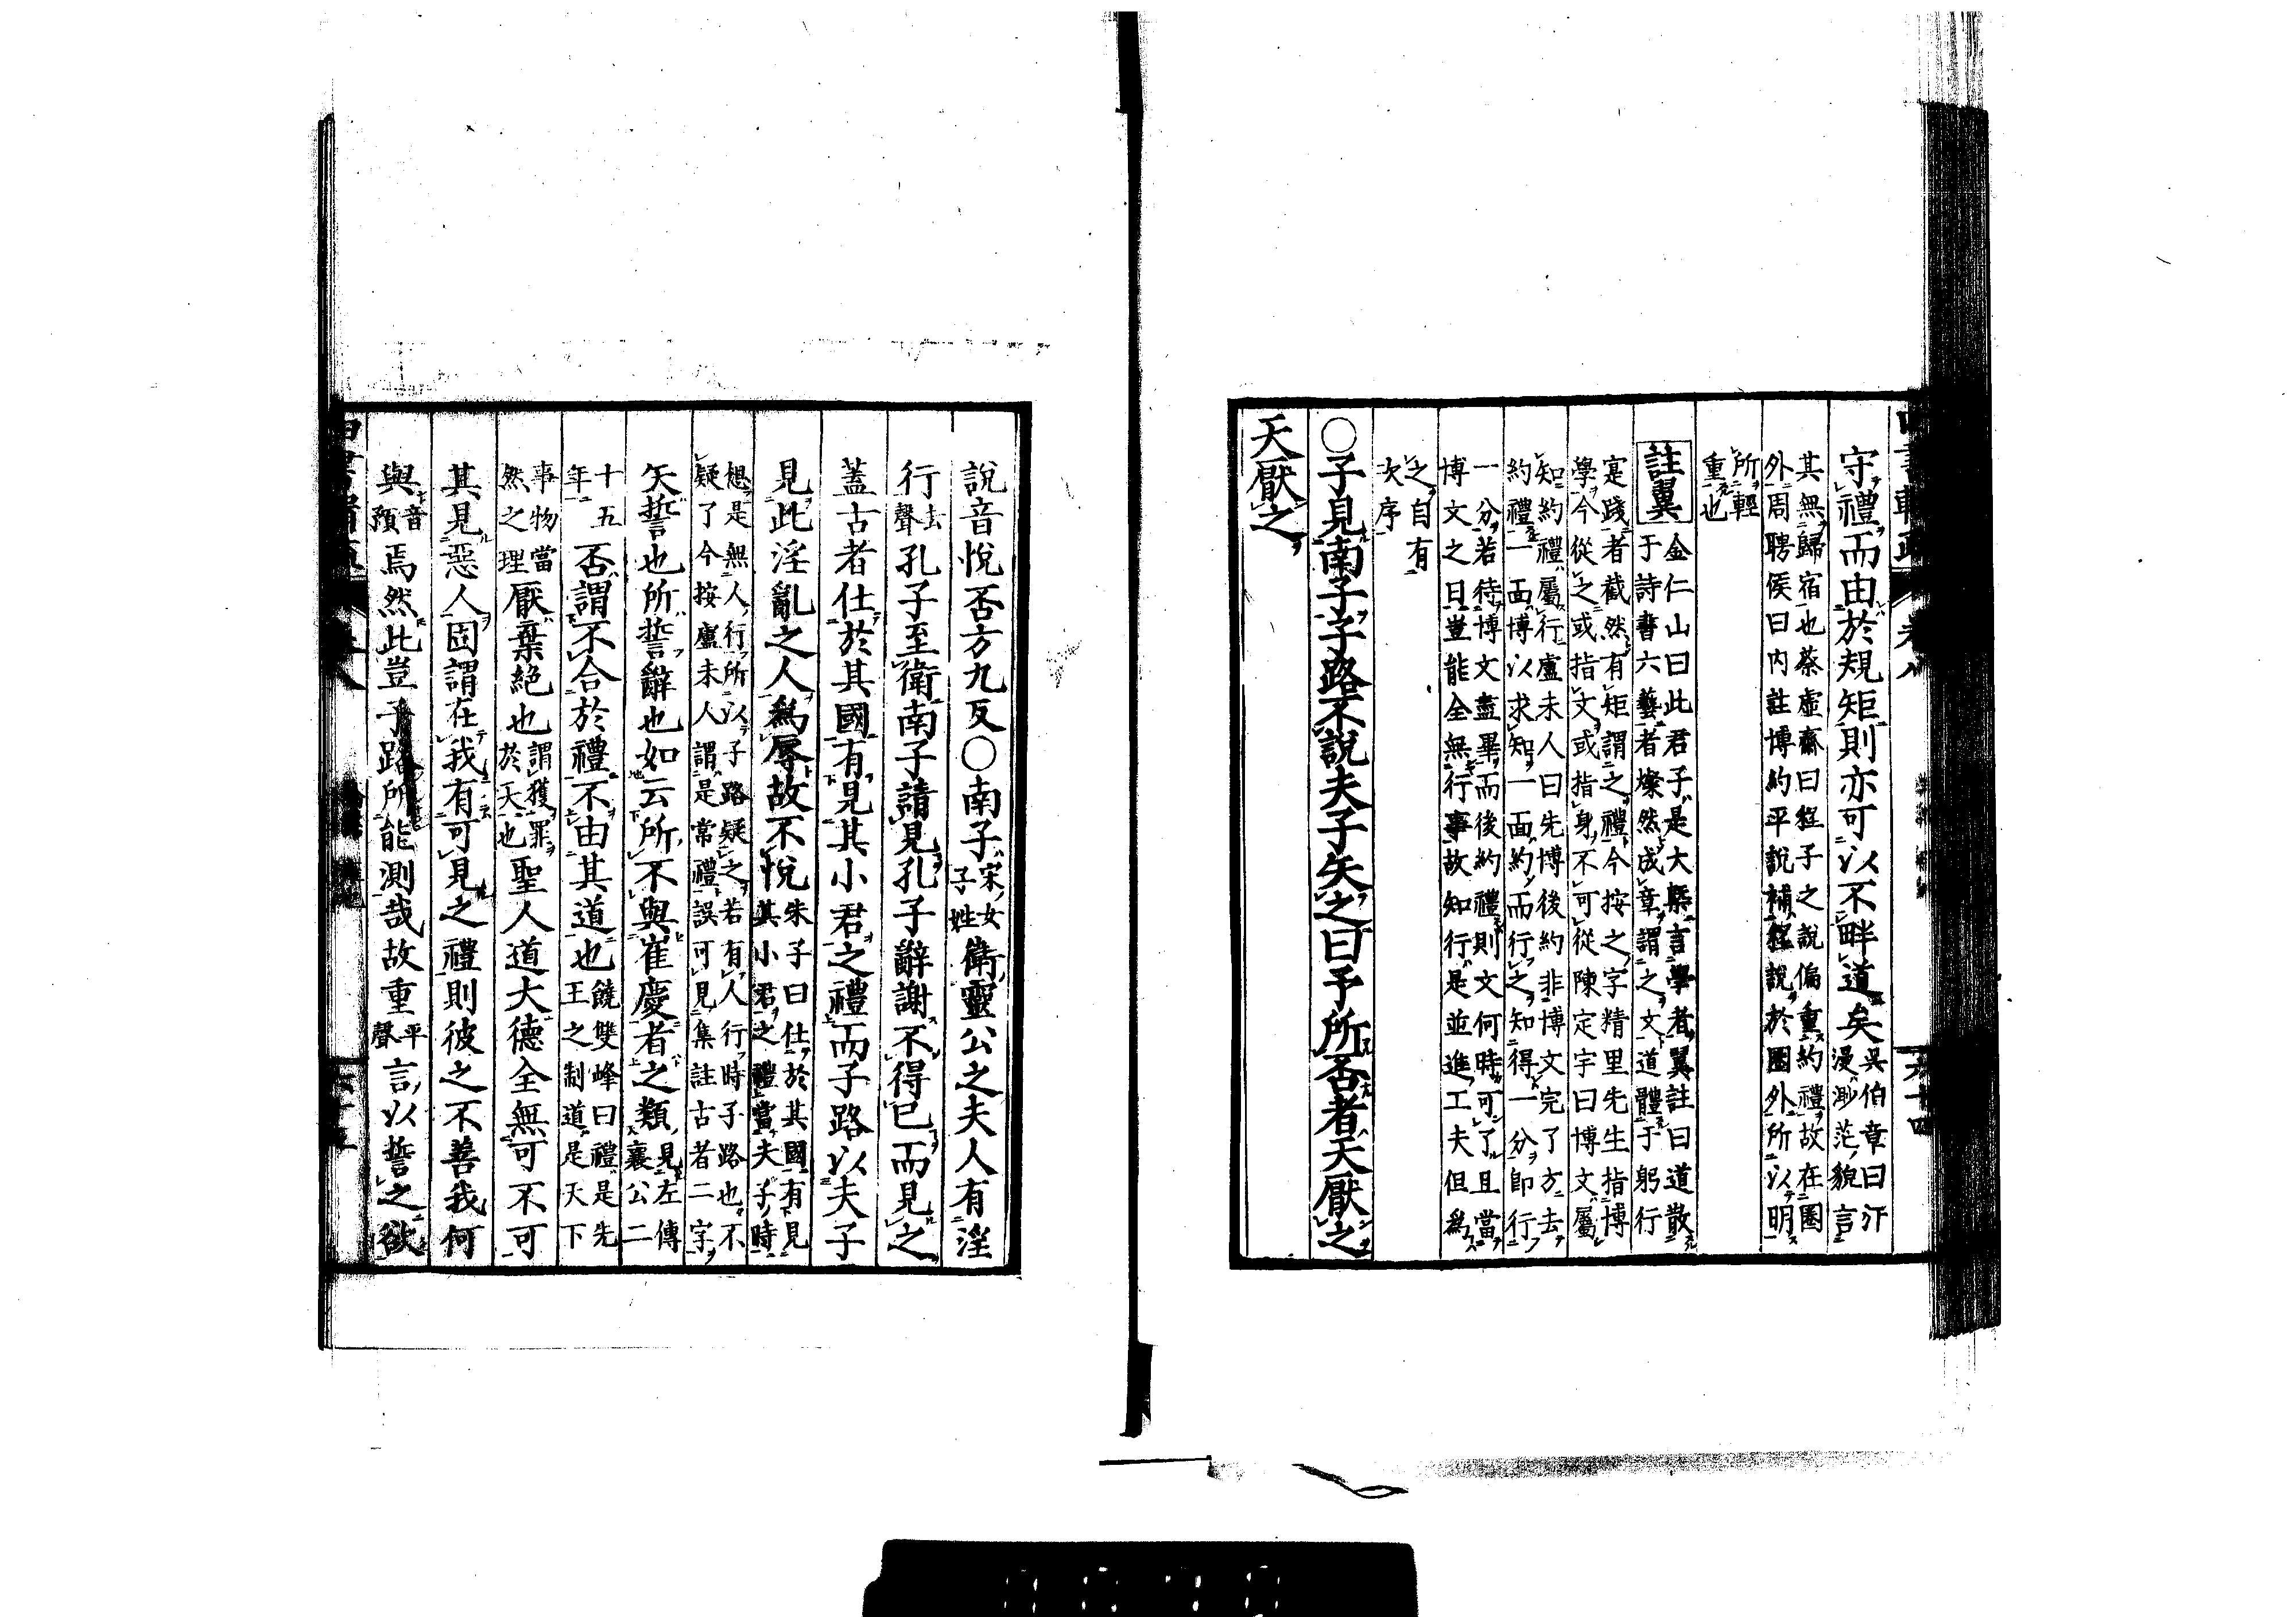 守禮而由於規矩則亦可以不畔道矣吳伯章曰汗
漫渺茫貌言
其無歸宿也蔡虛齋曰程子之說偏重約禮故在圈
外周聘侯曰內註博約平說補程說於圈外所以明
所輕
重也
註翼金仁山曰此君子是大槩言學者翼註曰道散
于詩書六藝者燦然成章謂之文道體于躬行
寔踐者截然有矩謂之禮今按之字精里先生指博
學今從之或指文或指身不可從陳定宇曰博文屬
知約禮屬行盧未人曰先博後約非博文完了方去
約禮一面博以求知一面約而行之知得一分卽行
一分若待博文盡畢而後約禮則文何時可了且當
博文之日豈能全無行事故知行是並進工夫但爲
之自有
次序
○子見南子子路不說夫子矢之曰予所否者天厭之
天厭之
說音悅否方九反○南子宋女
子姓衛靈公之夫人有淫
行去
聲孔子至衛南子請見孔子辭謝不得已而見之
蓋古者仕於其國有見其小君之禮而子路以夫子
見此淫亂之人爲辱故不悅朱子曰仕於其國有見
其小君之禮當夫子時
想是無人行所以子路疑之若有人行時子路也不
疑了今按盧未人謂是常禮誤可見集註古者二字
矢誓也所誓辭也如云所不與崔慶者之類見左傳
襄公二
十五
年否謂不合於禮不由其道也饒雙峰曰禮是先
王之制道是天下
事物當
然之理厭棄絕也謂獲罪
於天也聖人道大德全無可不可
其見惡人固謂在我有可見之禮則彼之不善我何
與音
預焉然此豈子路所能測哉故重平
聲言以誓之欲